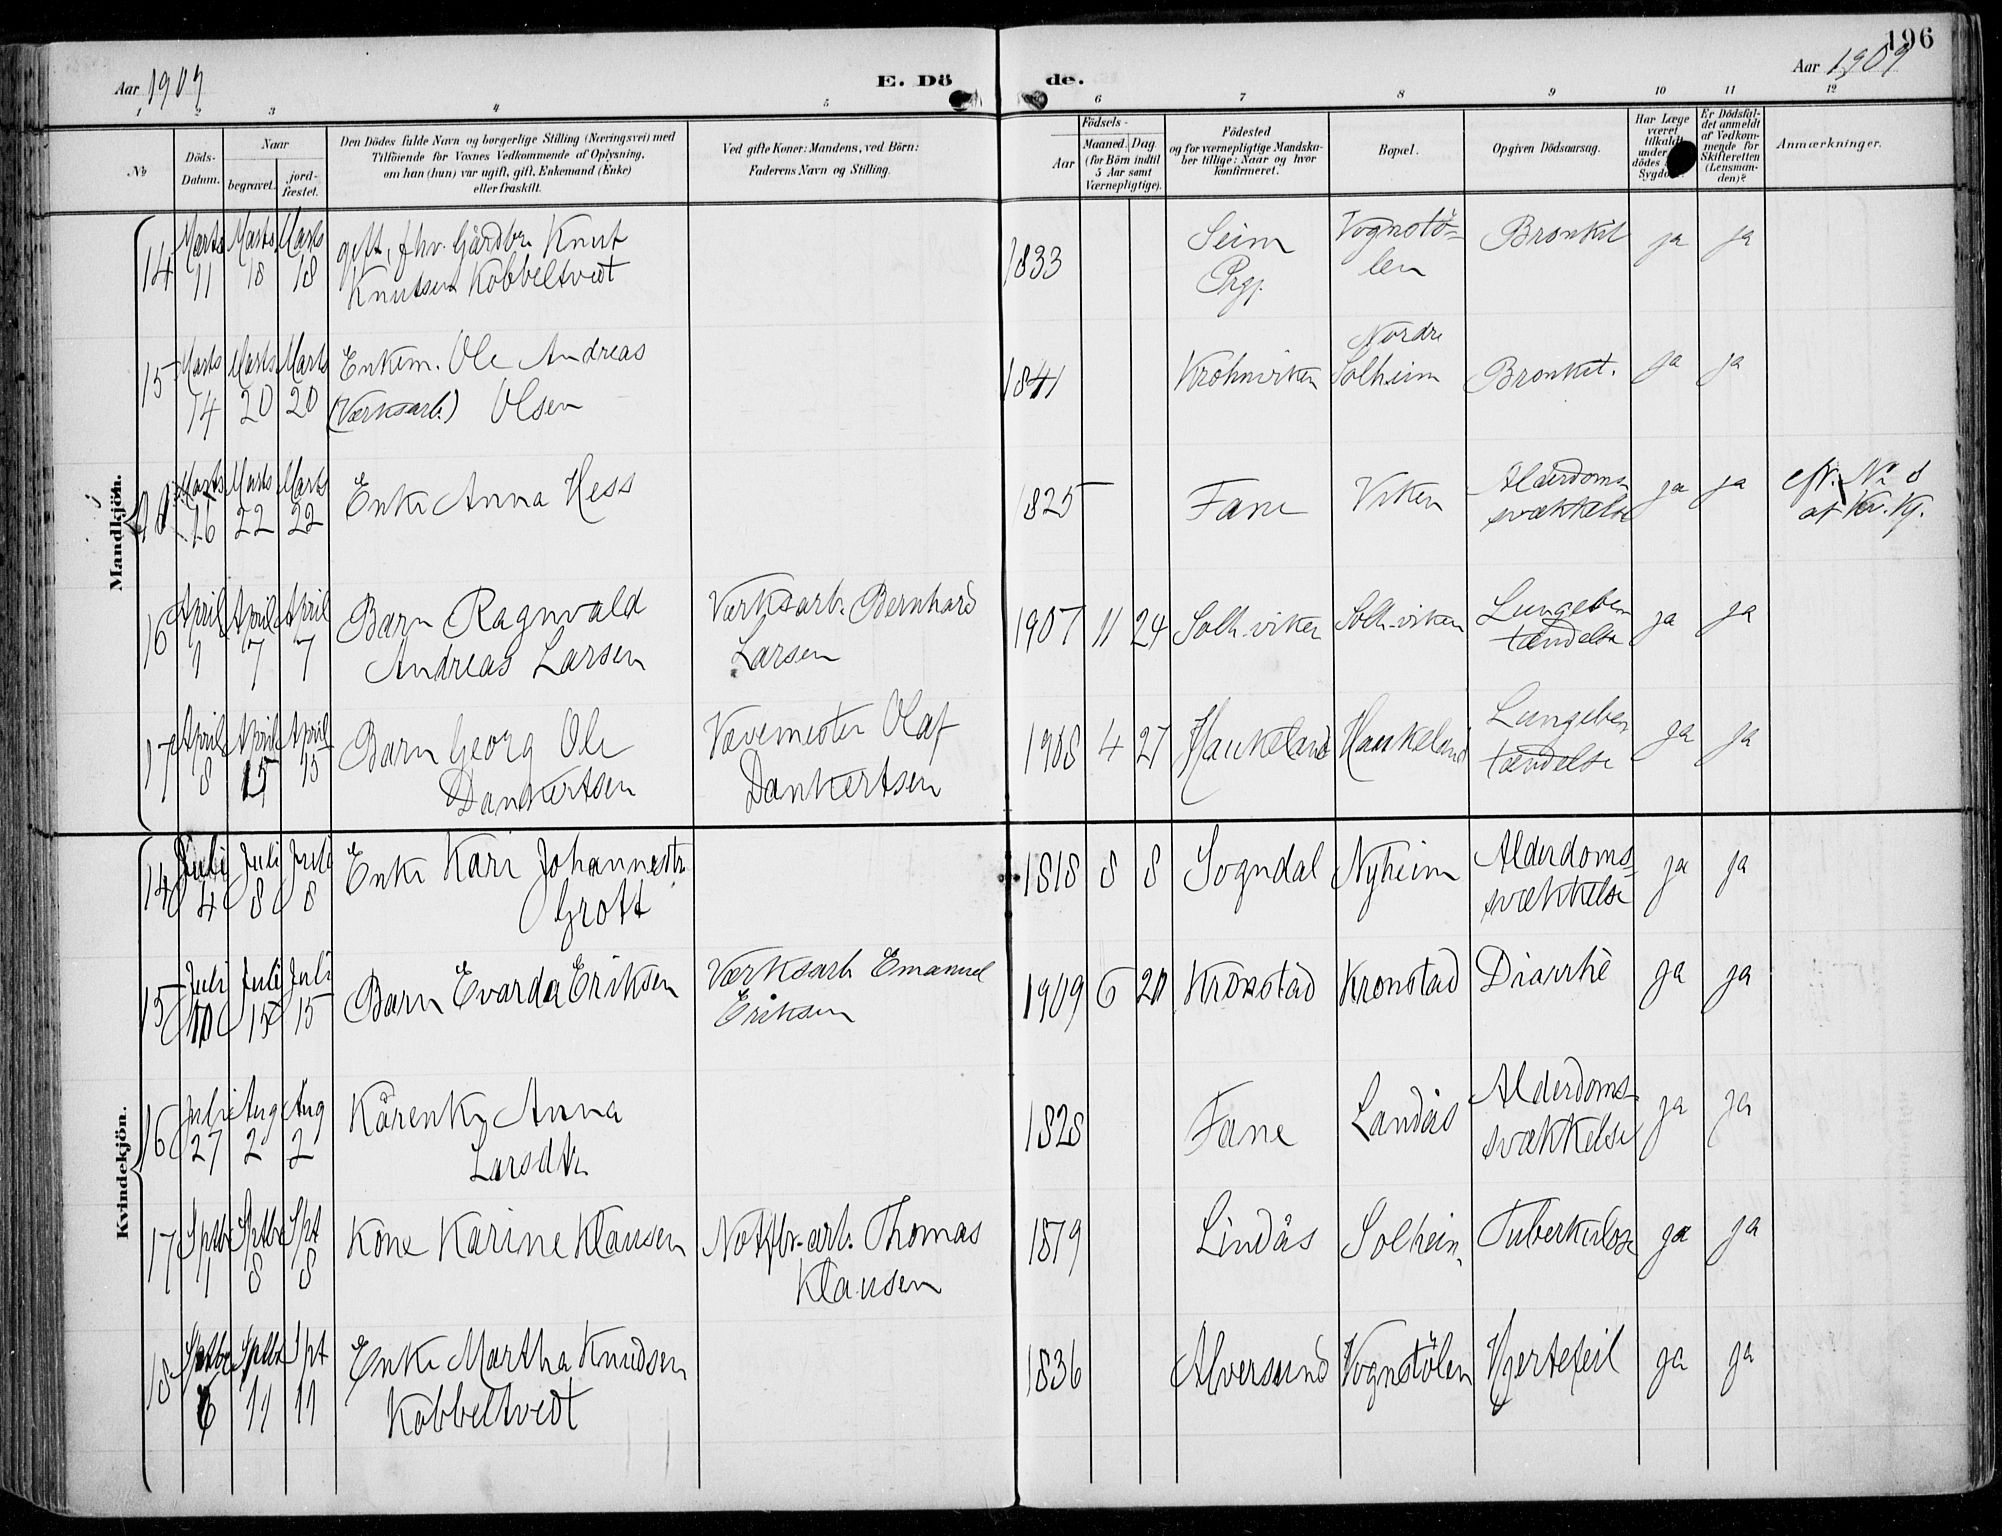 196
Aar 1909 E. Döde. Aar 1909
1 2 3 4 5 6 7 8 9 10 11 12
№
Döds-Datum.
Naar
begravet.
jord-fæstet.
Den Dödes fulde Navn og borgerlige Stilling (Næringsvei) med
Tilföiende for Voxnes Vedkommende af Oplysning,
om han (hun) var ugift, gift, Enkemand (Enke)
eller fraskilt.
Ved gifte Koner: Mandens, ved Börn:
Faderens Navn og Stilling.
Födsels-
Aar
Maaned. Dag.
(for Börn indtil
5 Aar samt
Værnepligtige).
Födested
og for værnepligtige Mandska-
ber tillige: Naar og hvor
konfirmeret.
Bopæl.
Opgiven Dödsaarsag.
Har Læge
været
tilkaldt
under
dödes
Er Dödsfal-
det anmeldt
af Vedkom-
mende for
Skifteretten
(Lensman-
den)?
Anmærkninger.
Mandkjön.
14 Marts 11 Marts 18 Marts 18 gift, fhv. Gårdbr. Knut
Knutsen Kobbeltvedt
1833 Seim Prgj. Vognstö-
len Bronkit ja ja
15 Marts 14 Marts 20 Marts 20 Enkem. Ole Andreas
(Værksarb.) Olsen
1841 Krohnviken Nordre
Solheim Bronkit. ja ja
Marts 16 Marts 22 Marts 22 Enke Anna Hess
1825 Fane Viken Alderdoms-
svækkelse ja ja
16 April 1 April 7 April 7 Barn Ragnvald
Andreas Larsen
Værksarb. Bernhard
Larsen
1907 11 24 Solh.viken Solh.viken Lungebe-
tændelse ja ja
17 April 8 April 15 April 15 Barn Georg Ole
Dankertsen
Vævemester Olaf
Dankertsen
1908 4 27 Haukeland Haukeland Lungebe-
tændelse ja ja
Kvindekjön.
14 Juli 4 Juli 8 Juli 8 Enke Kari Johannesdtr.
Grott
1818 8 8 Sogndal Nyheim Alderdoms-
svækkelse ja ja
15 Juli 10 Juli 15 Juli 15 Barn Evarda Eriksen
Værksarb. Emanuel
Eriksen
1909 6 20 Kronstad Kronstad Diarrhè ja ja
16 Juli 27 Aug 2 Aug 2 Kårenke Anna
Larsdtr.
1828 Fane Landås Alderdoms-
svækkelse ja ja
17 Sptbr 1 Sptbr 8 Spt 8 Kone Karine Klausen
Thomas
Klausen
1879 Lindås Solheim Tuberkulose ja ja
18 Sptbr 6 Sptbr 11 Spt 11 Enke Martha Knudsen
Kobbeltvedt
1836 Alversund Vognstölen Hjertefeil ja ja